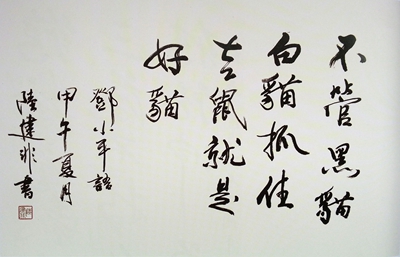 不管黑貓
白貓抓住
老鼠就是
好貓
鄧小平語
甲午夏月
陸建非書